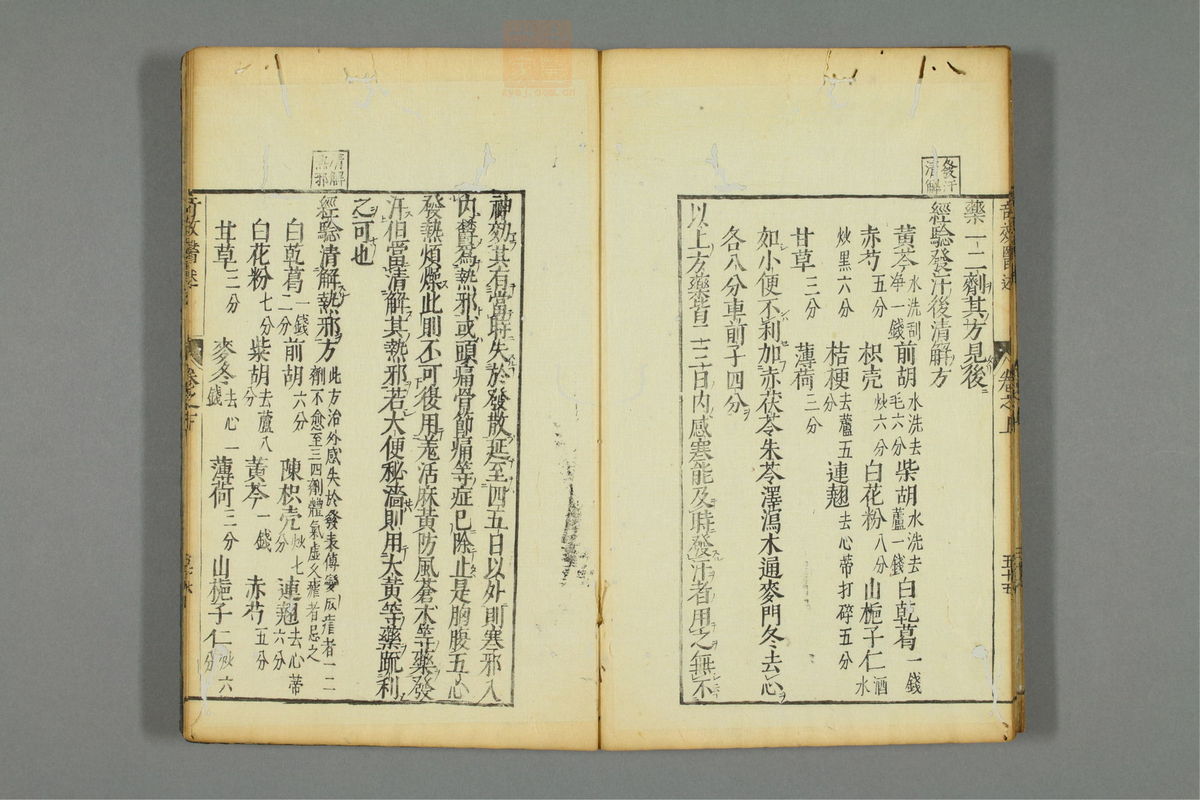 發汗
清解
藥一二劑其方見後
經驗發汗後清解方
黄芩水洗刮净一錢 前胡水洗去毛六分 柴胡水洗去蘆一錢 白乾葛一錢
赤芍五分 枳壳炒六分 白花粉八分 山梔子仁酒水
炒黑六分 桔梗去蘆五分 連翹去心蒂打碎五分
甘草三分 薄荷三分
如小便不利加赤茯苓朱苓澤瀉木通麥門冬去心
各八分車前子四分
以上方藥皆二三日内感寒能及時發汗者用之無不
卷之上
五十五
清解
熱邪
神效其有當時失於發散延至四五日以外則寒邪入
内鬱爲熱邪或頭痛骨節痛等症已除止是胸腹五心
發熱煩燥此則不可復用羗活麻黄防風蒼朮等藥發
汗但當清解其熱邪若大便秘濇則用大黄等藥䟽利
之可也
經驗清解熱邪方此方治外感失於發表傳變瘧者一二劑不愈至三四劑體氣虚久瘧者忌之
白乾葛一錢二分 前胡六分 陳枳壳炒七分 連翹去心蒂六分
白花粉七分 柴胡去蘆八分 黄芩一錢 赤芍五分
甘草三分 麥冬去心一錢 薄荷三分 山梔子仁炒六分